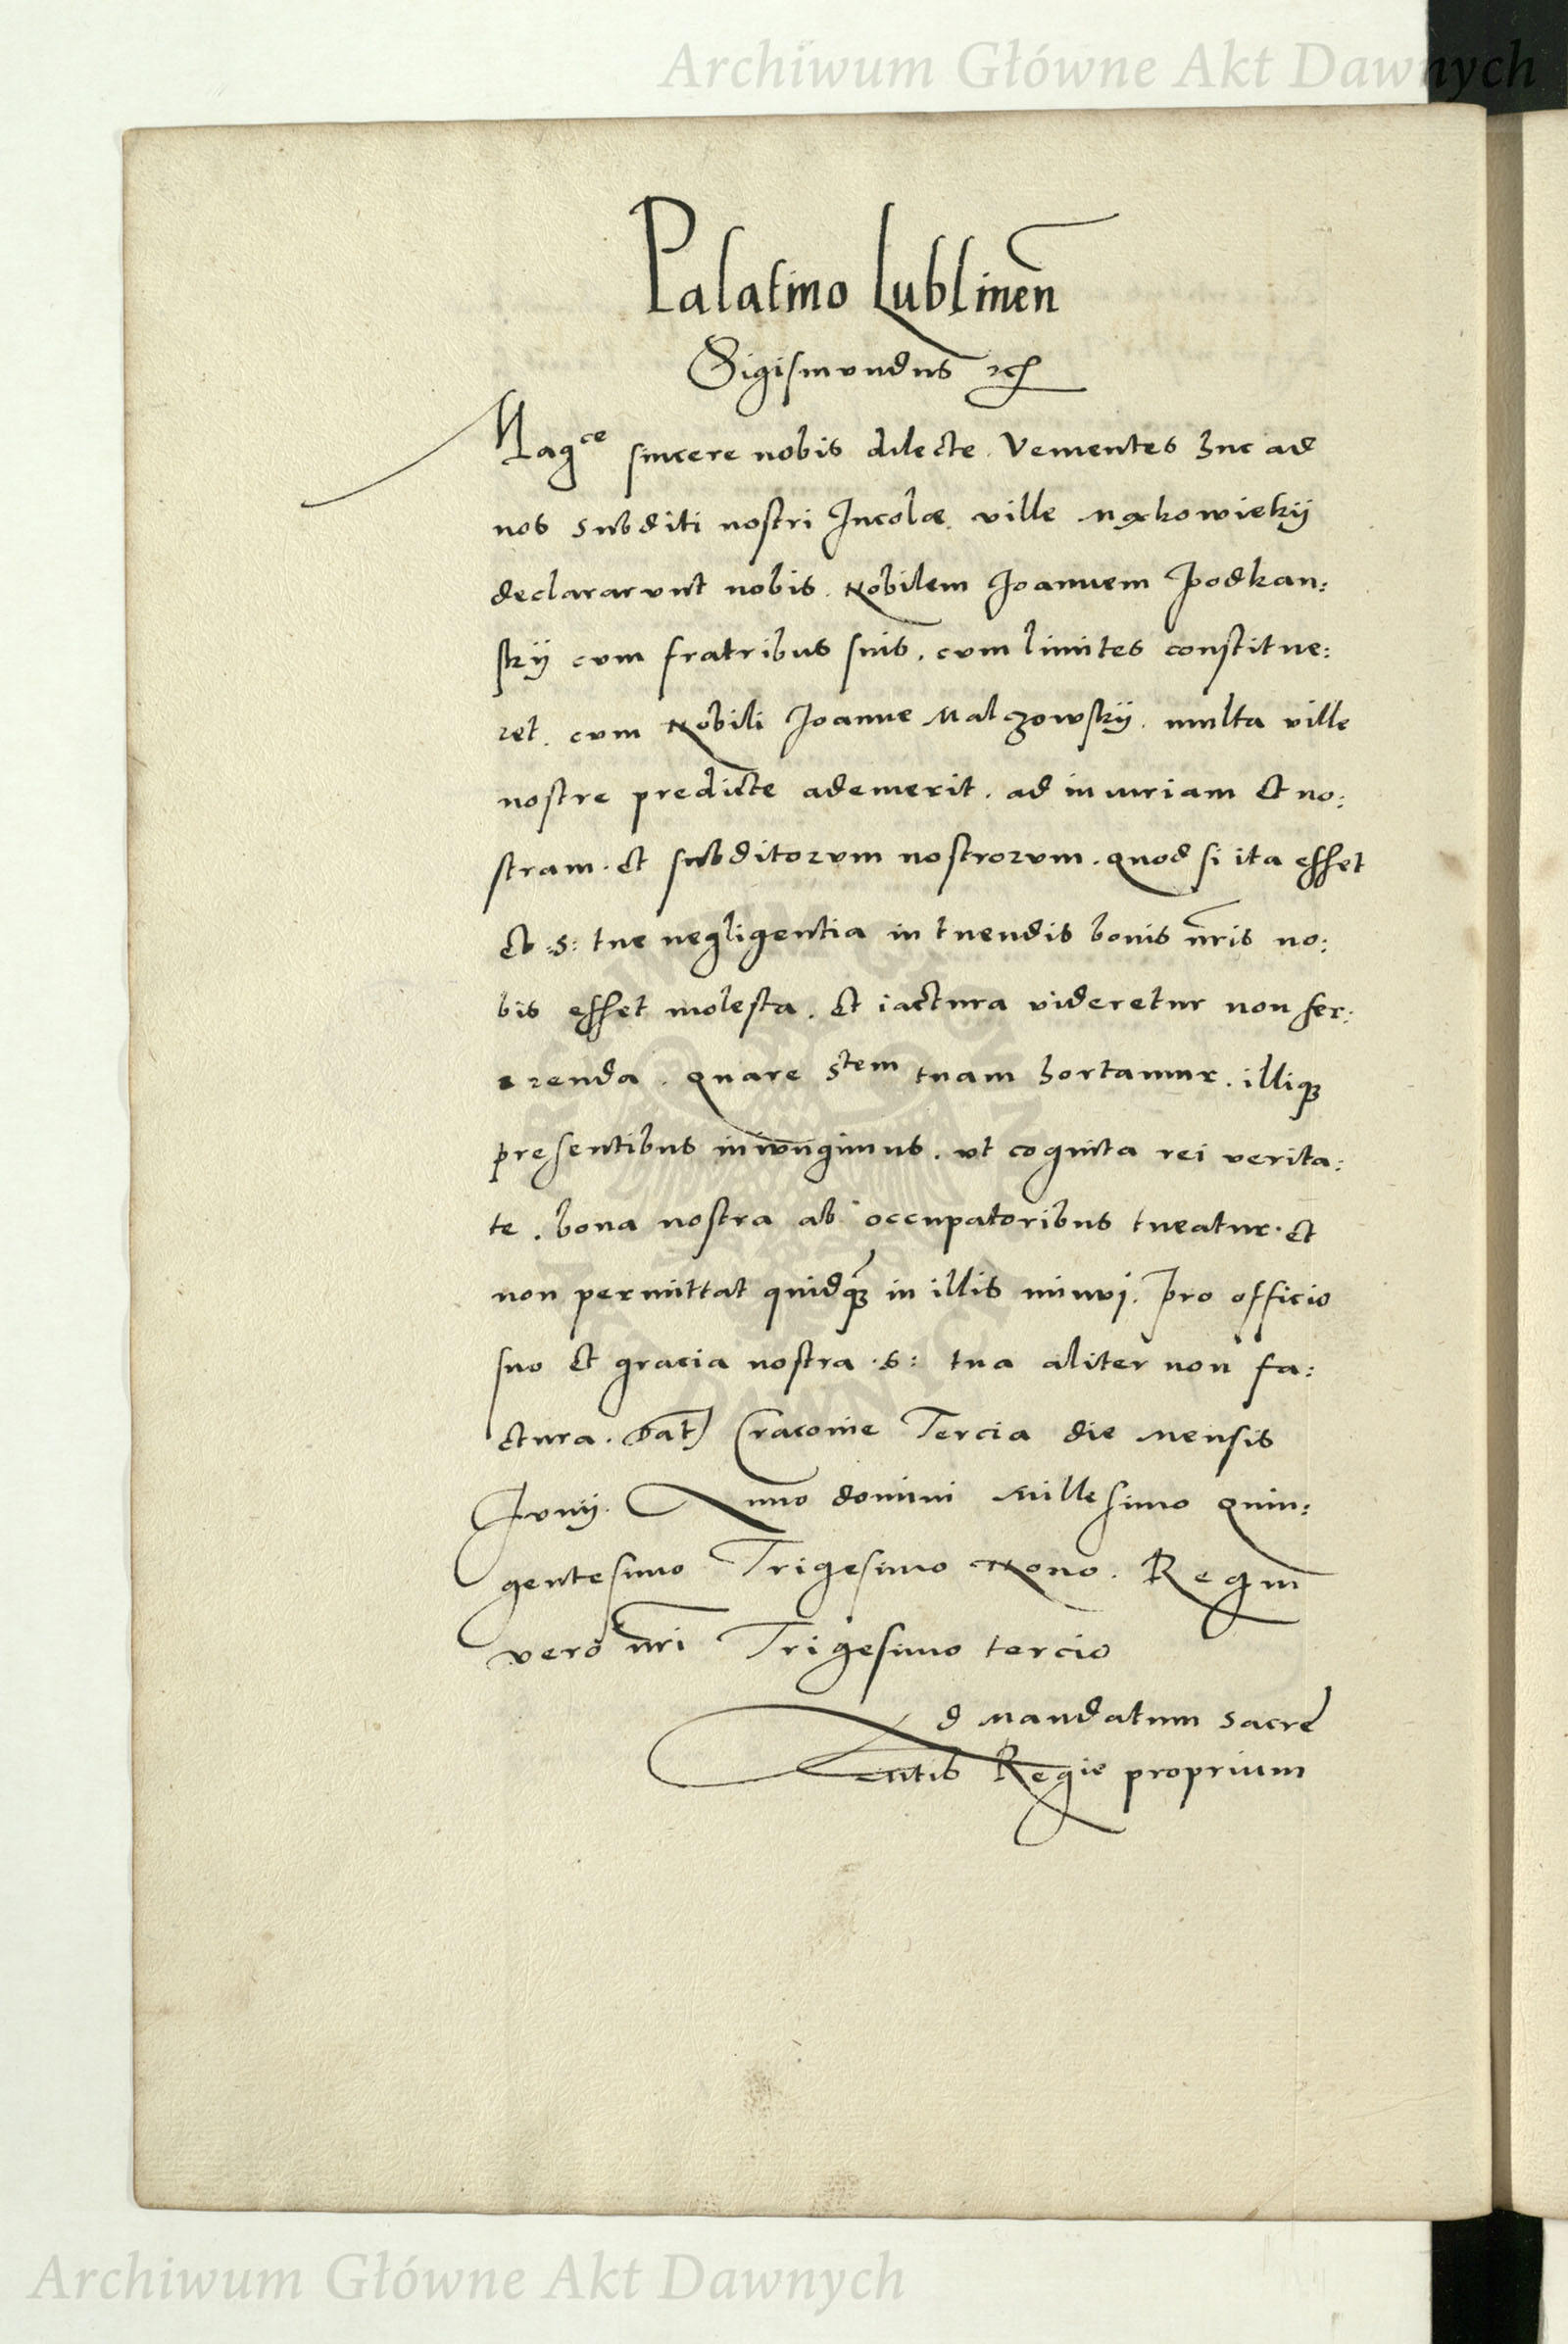 Archiwum Główne Akt Dawnych
Palatino Lublinen̄
Sigismundus etc
Mag^ce sincere nobis dilecte. Venientes huc ad
nos subditi nostri Incolæ ville Makowieky
declararunt nobis. Nobilem Joannem Podkan:
sky cum fratribus suis. cum limites constitue:
ret. cum Nobili Joanne Malczowsky. multa ville
nostre predicte ademerit. ad iniuriam et no:
stram. et subditorum nostrorum. quod si ita esset
et :S: tue negligentia in tuendis bonis nr̄is no:
bis esset molesta. et iactura videretur non fer:
renda. quare S^tem tuam hortamur. illiq3
presentibus iniungimus. ut cognita rei verita:
te. bona nostra ab occupatoribus tueatur. et
non permittat quidq3 in illis minui. Pro officio
suo et gracia nostra .S: tua aliter non fa:
ctura. Dat̄ Cracovie Tercia die Mensis
Junij. Anno domini Millesimo quin:
gentesimo Trigesimo Nono. Regnī
vero nr̄i Trigesimo tercio
Ad Mandatum Sacre
Mtis Regie proprium
Archiwum Główne Akt Dawnych